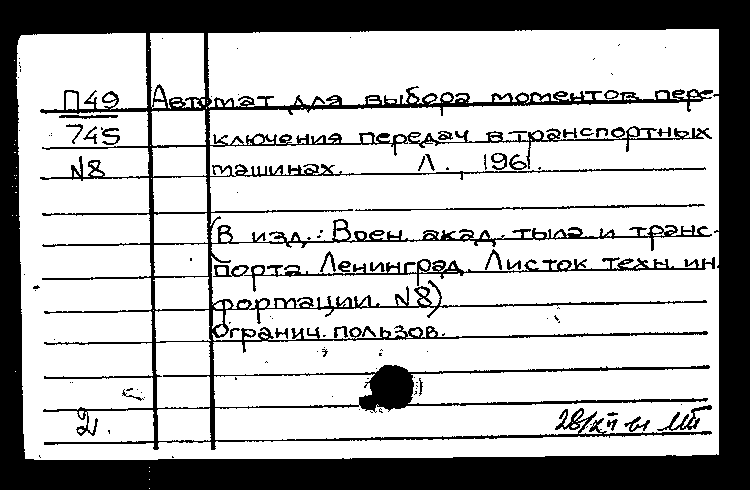 П49 Автомат для выбора моментов пере-
745 ключения передач в транспортных
N8 машинах. Л., 1961.
(В изд.: Воен. акад. тыла и транс-
порта. Ленинград. Листок техн. ин
формации. N8)
Огранич. пользов.
2.